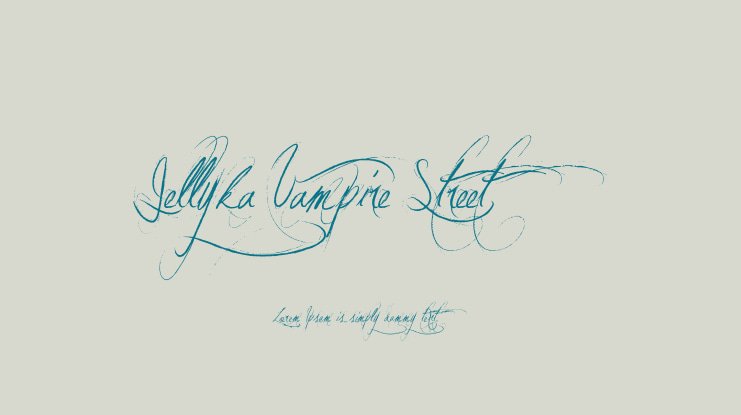 Jellyka Vampire Street
Lorem Ipsum is simply dummy text